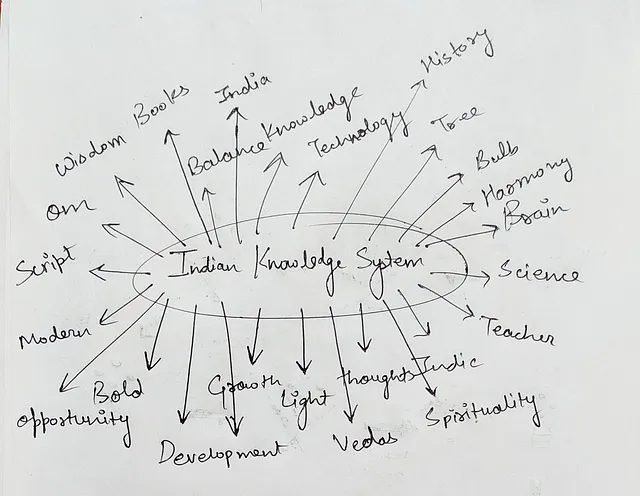 History
India
Books
Knowledge
Technology
Tree
Wisdom
Balance
Bulb
Harmony
Om
Brain
Script
Indian Knowledge System
Science
Modern
Teacher
Bold
Growth
Light
thoughts
Indic
opportunity
Spirituality
Development
Vedas